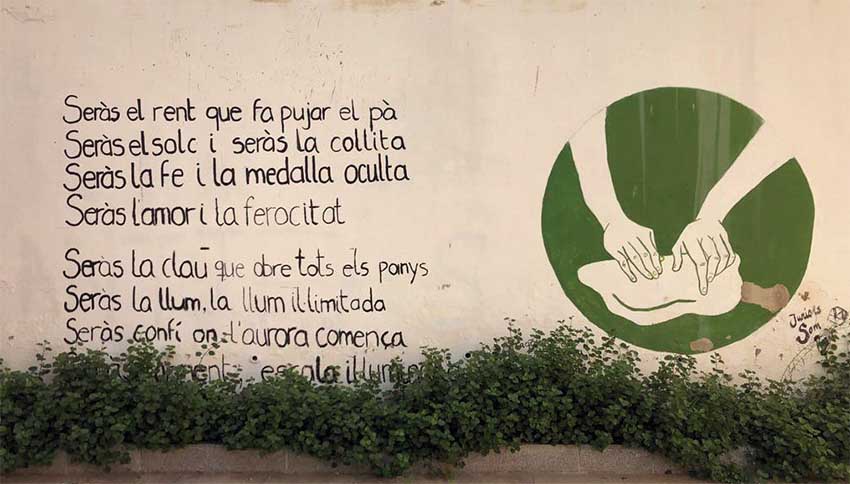 Seràs el rent que fa pujar el pà
Seràs el solc i seràs la collita
Seràs la fe i la medalla oculta
Seràs l'amor i la ferocitat
Seràs la clau que obre tots els panys
Seràs la llum, la llum il·limitada
Seràs confí on l'aurora comença
escala
Som